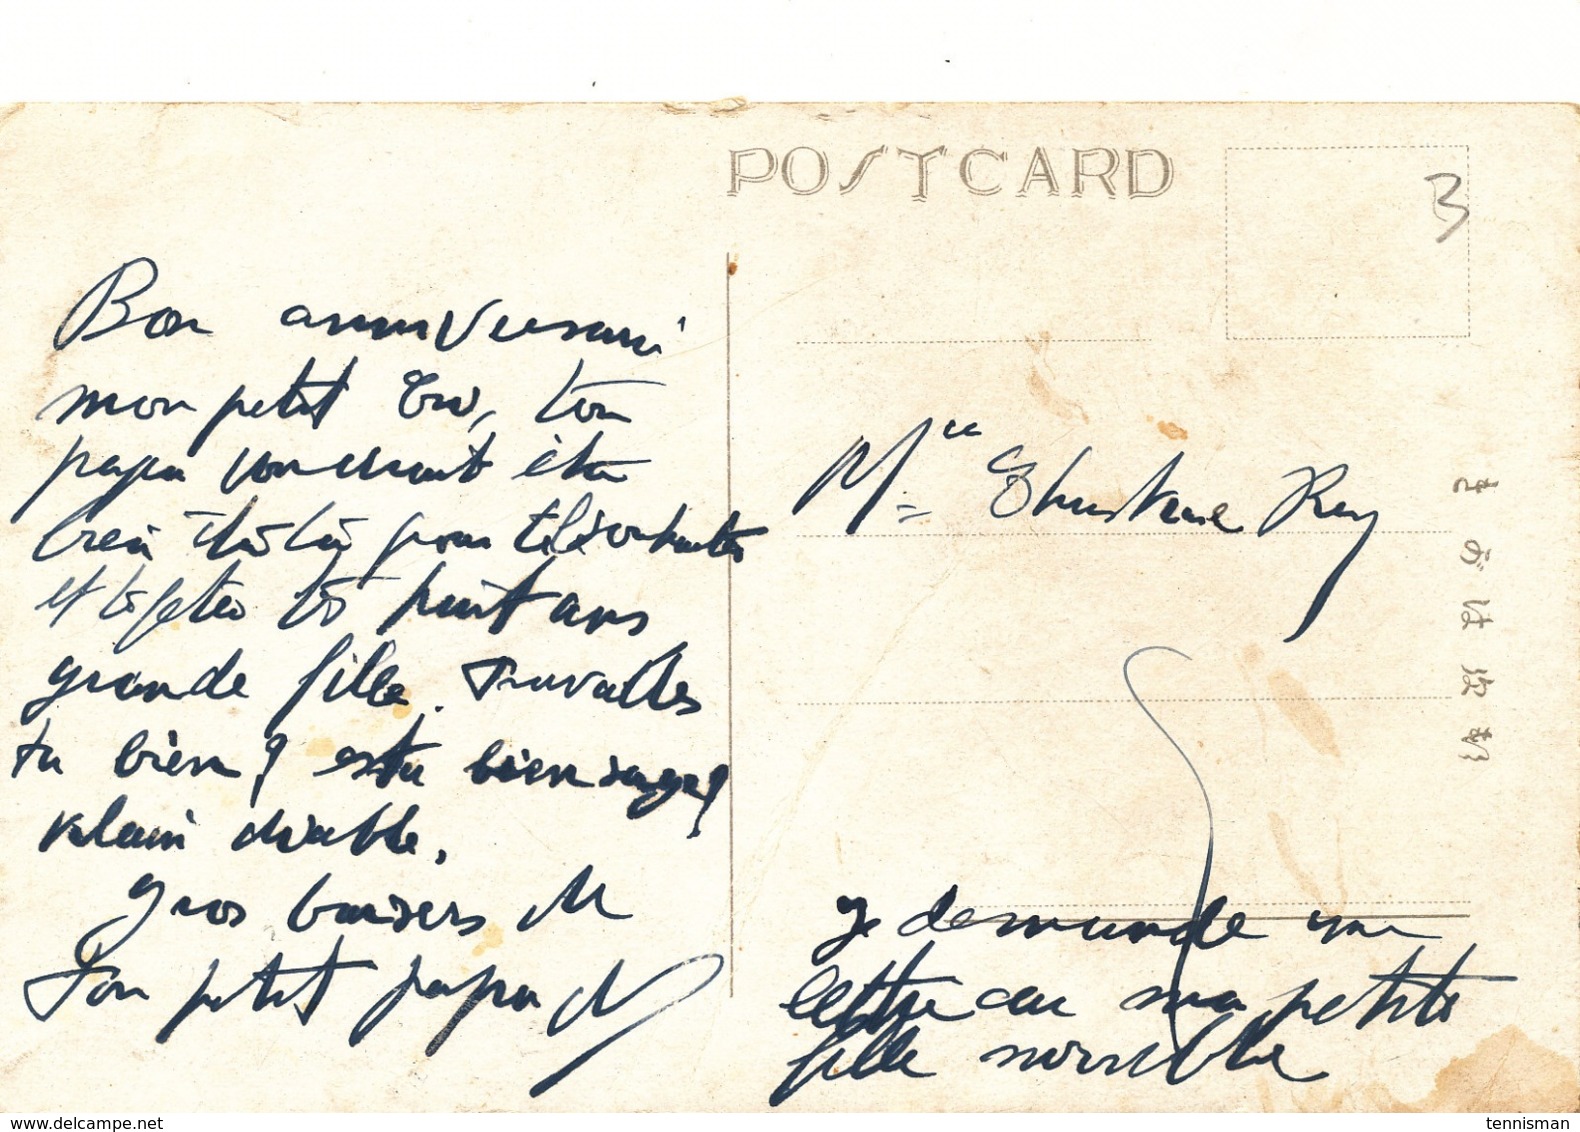 POSTCARD
B
Bon anniversaire
mon petit ton
papa voudrait être
bien là pour te
et te huit ans
grande fille. Travailles
tu bien? estu bien sage?
vilain diable.
gros baisers
Ton petit papa
Mlle Christiane Rey
Je demande une
lettre à ma petite
fille
delcampe.net
tennisman